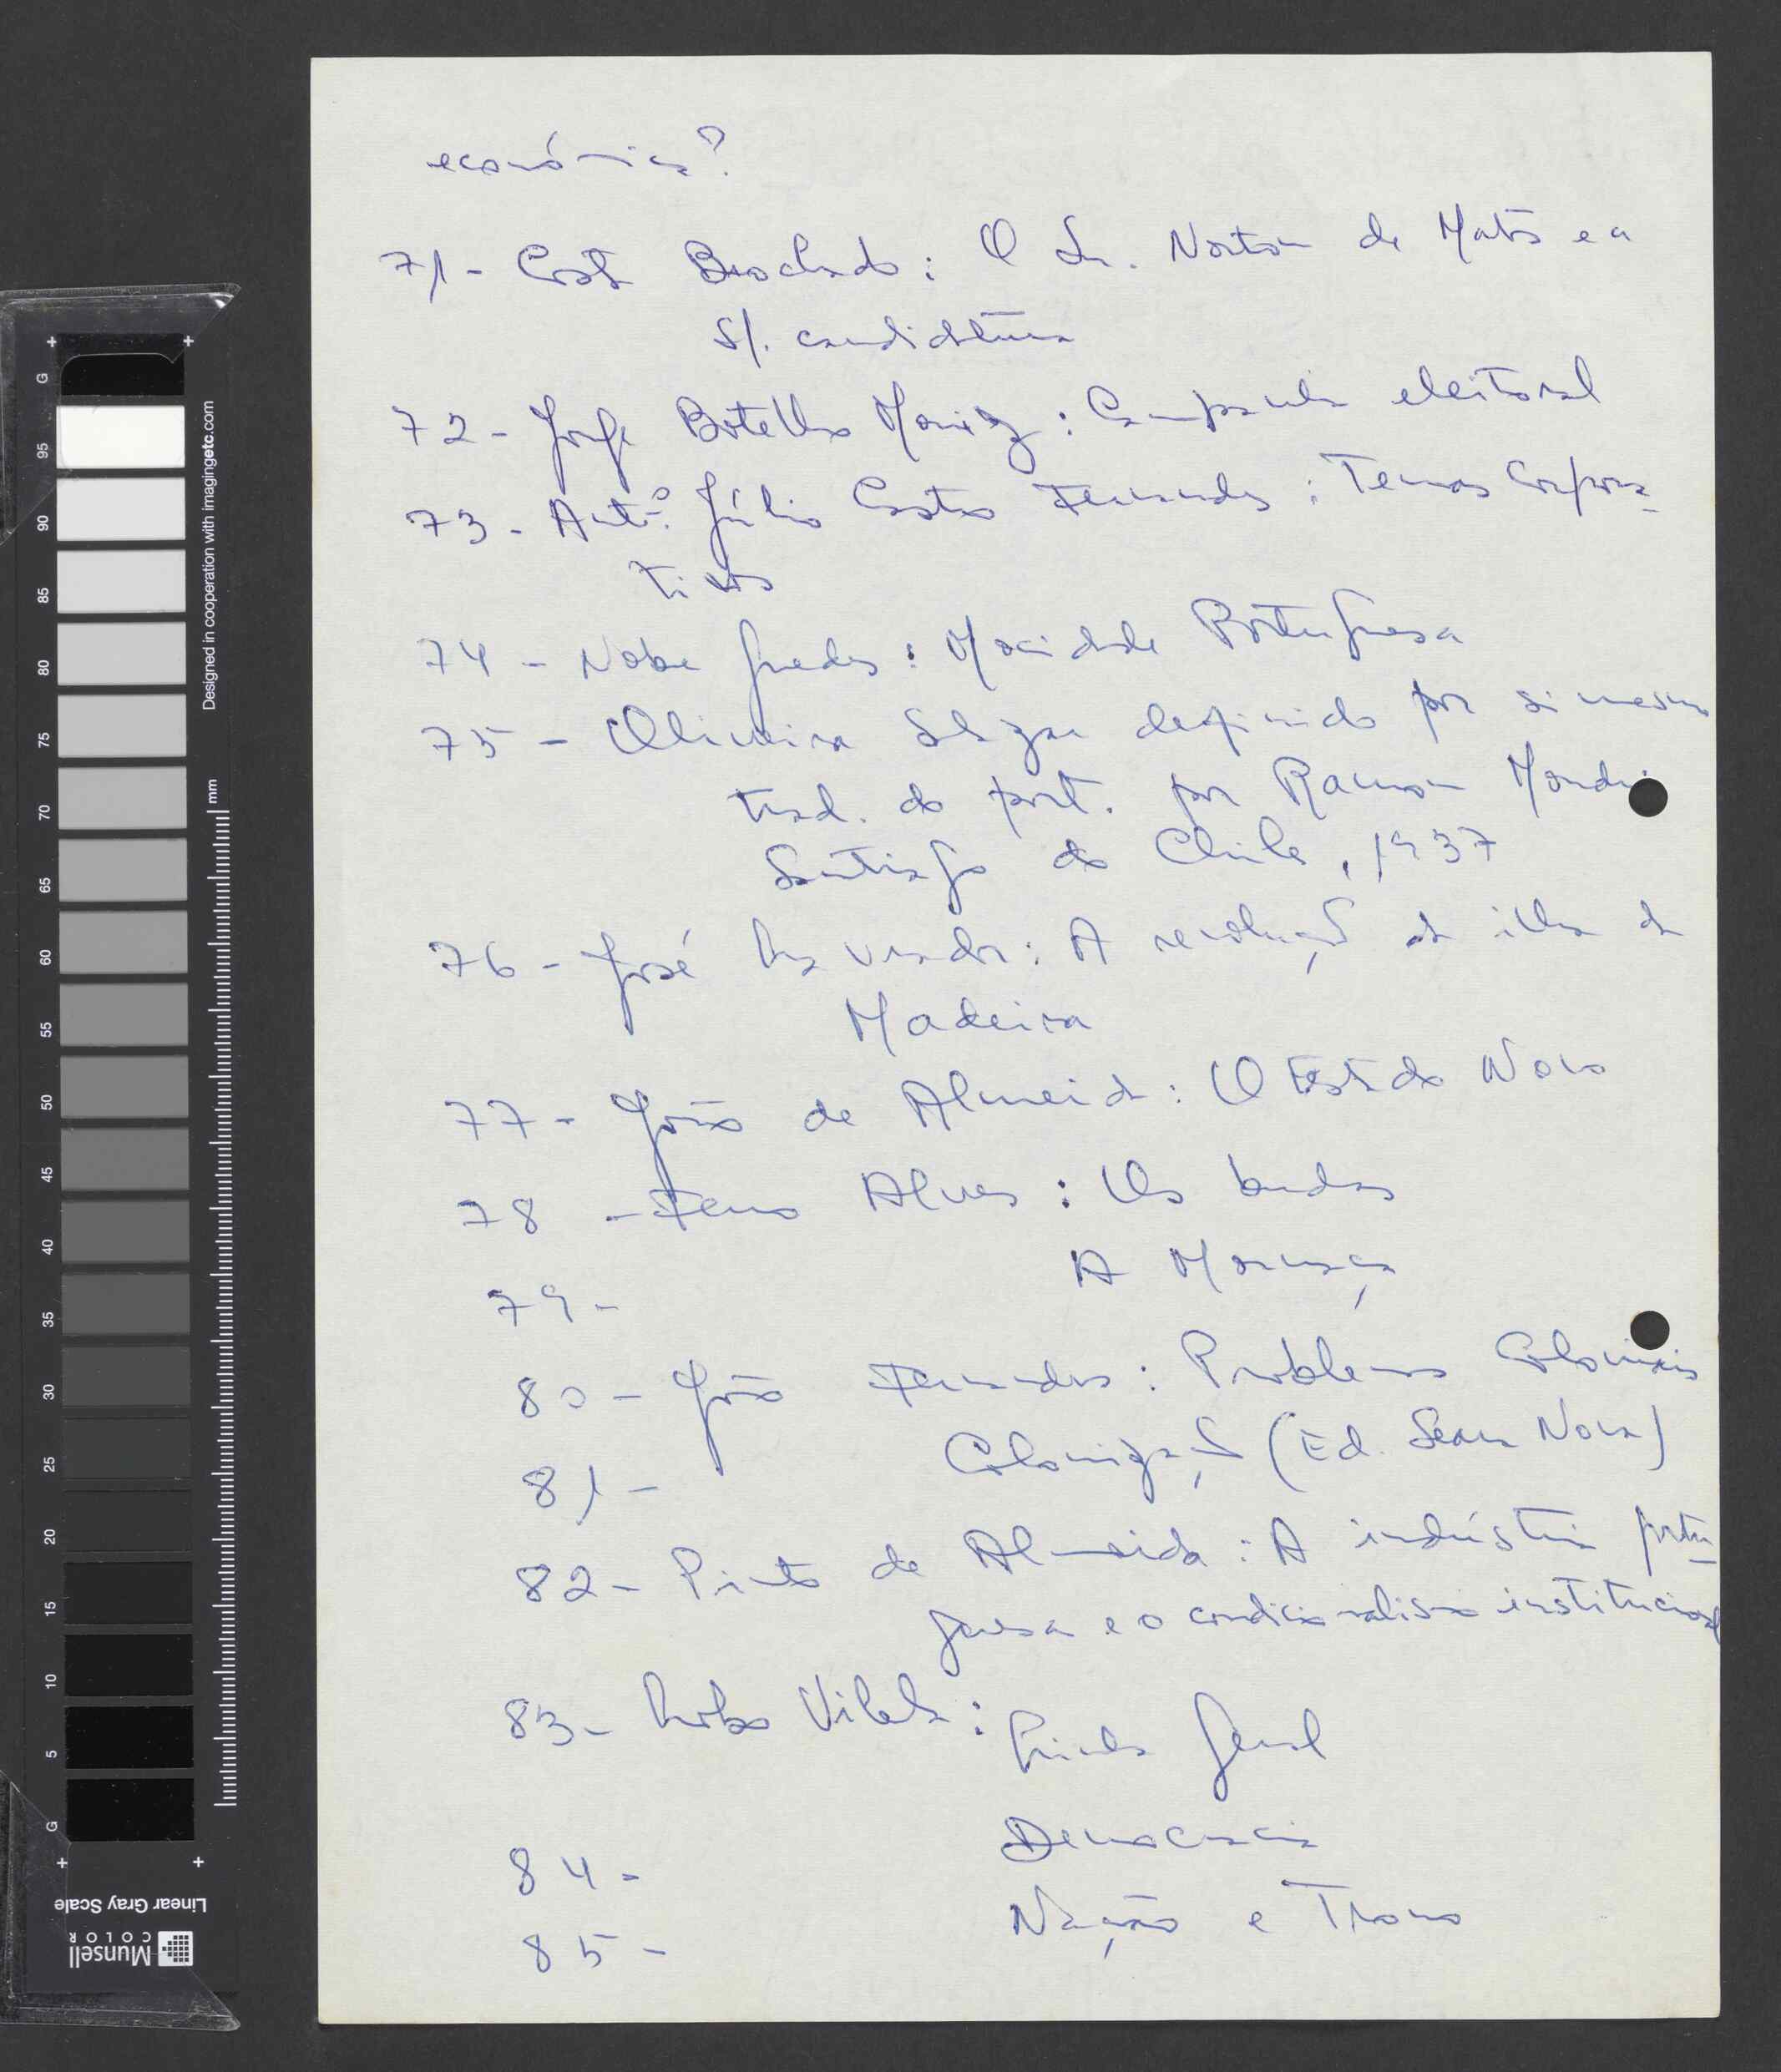 económica?
71 - Costa Brochado: O Sr. Norton de Matos e a
s/. candidatura
72 - Jorge Botelho Moniz: Campanha eleitoral
73 - Antº. Júlio Castro Fernandes: Temas Corpora-
tivos
74 - Nobre Guedes: Mocidade Portuguesa
75 - Oliveira Salazar definido por si mesmo
trad. do port. por Ramon
Santiago do Chile, 1937
76 - José : A revolução da ilha da
Madeira
77 - João de Almeida: O Estado Novo
78 - Alves: Os budas
A Mornaça
79 -
80 - João Fernandes: Problemas Coloniais
81 - Colonização (Ed. Seara Nova)
82 - Pinto de Almeida: A indústria portu-
guesa e o condicionalismo institucional
83 - Lobo Vilela: Linha Geral
Democracia
84 -
Nação e Trono
85 -
G
95
90
85
80
75
70
65
60
55
50
45
40
35
30
25
20
15
10
5
G
Designed in cooperation with imagingetc.com
mm
Linear Gray Scale
Munsell
COLOR